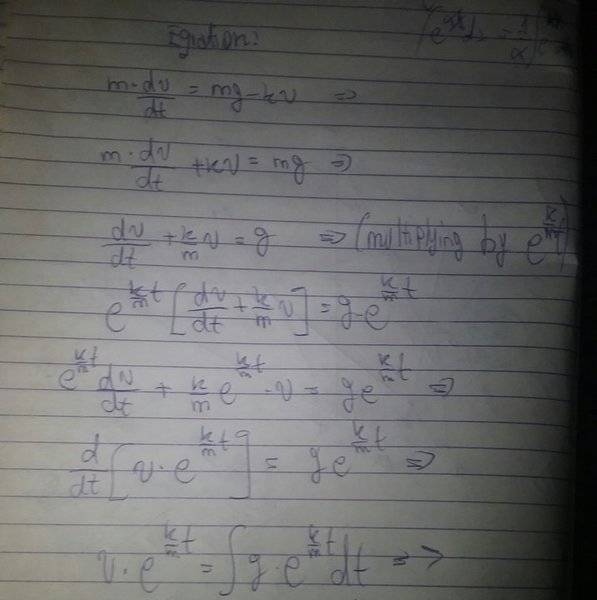 (e^{αt}dt = 1/α (e
Equation:
m·dv/dt = mg-kv =>
m·dv/dt + kv = mg =>
dv/dt + k/m v = g => (multiplying by e^{k/m t})
e^{k/m t} [dv/dt + k/m v] = g·e^{k/m t}
e^{k/m t} dv/dt + k/m e^{k/m t} · v = ge^{k/m t} =>
d/dt [v·e^{k/m t}] = ge^{k/m t} =>
v·e^{k/m t} = ∫g·e^{k/m t}dt =>